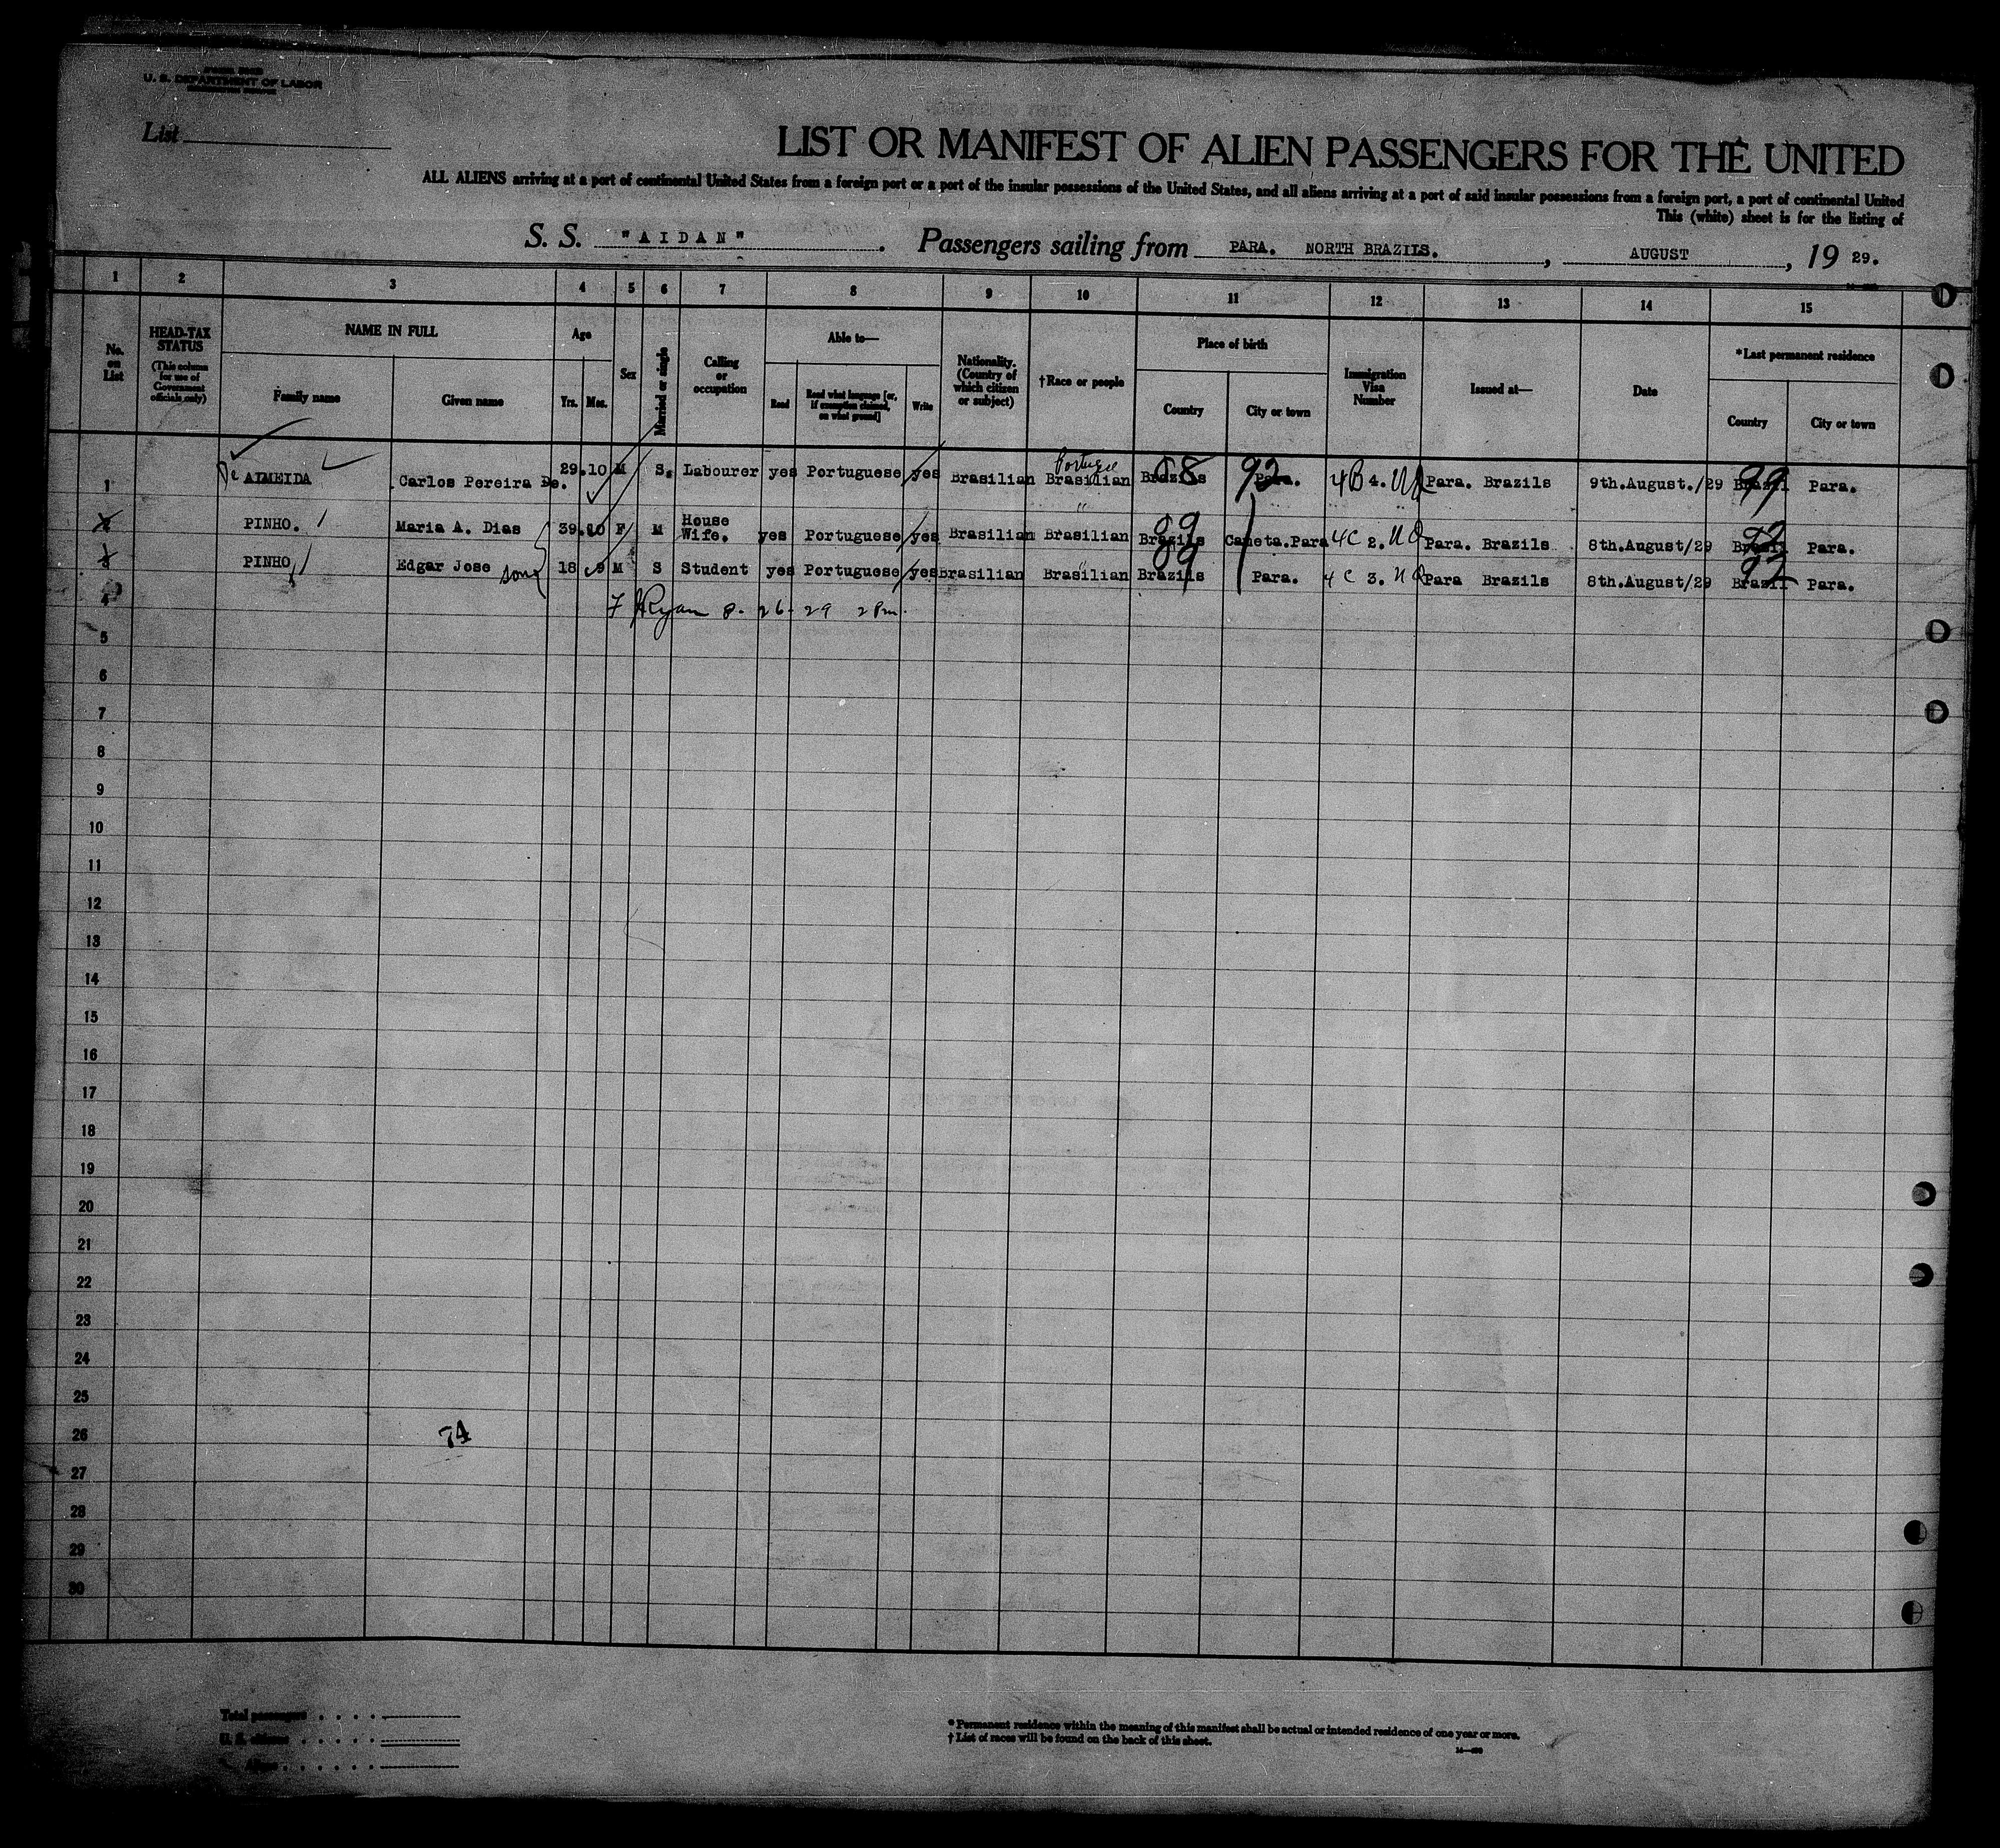 U. S. DEPARTMENT OF LABOR
List
LIST OR MANIFEST OF ALIEN PASSENGERS FOR THE UNITED
ALL ALIENS arriving at a port of continental United States from a foreign port or a port of the insular possessions of the United States, and all aliens arriving at a port of said insular possessions from a foreign port, a port of continental United
This (white) sheet is for the listing of
S. S. "AIDAN". Passengers sailing from PARA. NORTH BRAZILS., AUGUST, 19 29.
1 2 3 4 5 6 7 8 9 10 11 12 13 14 15
No. on List
HEAD-TAX STATUS
(This column for use of Government officials only)
NAME IN FULL
Family name
Given name
Age
Yrs. Mos.
Sex
Married or single
Calling or occupation
Able to—
Read
Read what language [or, if exemption claimed, on what ground]
Write
Nationality. (Country of which citizen or subject)
†Race or people
Place of birth
Country
City or town
Immigration Visa Number
Issued at—
Date
*Last permanent residence
Country
City or town
Portugee
1 De ALMEIDA Carlos Pereira De. 29.10 M S. Labourer yes Portuguese yes Brasilian Brasilian Brazils 68 92 Para. 4B 4. Para. Brazils 9th.August./29 Brazil 99 Para.
2 PINHO. Maria A. Dias 39.10 F M House Wife. yes Portuguese yes Brasilian Brasilian Brazils 89 Cameta.Para 4C 2. Para. Brazils 8th.August/29 Brazil Para.
3 PINHO Edgar Jose son 18 9 M S Student yes Portuguese yes Brasilian Brasilian Brazils 89 Para. 4C 3. Para Brazils 8th.August/29 Brazil Para.
4 Ryan 8-26-29 2 Pm.
5
6
7
8
9
10
11
12
13
14
15
16
17
18
19
20
21
22
23
24
25
26
74
27
28
29
30
Total passengers
U. S. citizens
Aliens
* Permanent residence within the meaning of this manifest shall be actual or intended residence of one year or more.
† List of races will be found on the back of this sheet.